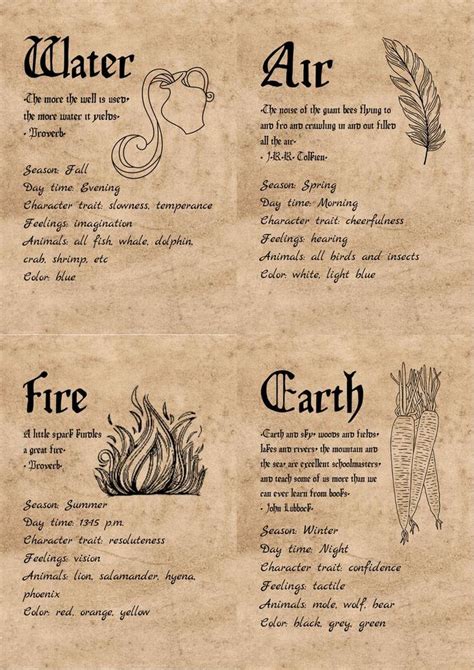 Water
•The more the well is used,
the more water it yields•
• Proverb•
Season: Fall
Day time: Evening
Character trait: slowness, temperance
Feelings: imagination
Animals: all fish, whale, dolphin,
crab, shrimp, etc
Color: blue
Air
•The noise of the giant bees flying to
and fro and crawling in and out filled
all the air•
• J•R•R• Tolkien•
Season: Spring
Day time: Morning
Character trait: cheerfulness
Feelings: hearing
Animals: all birds and insects
Color: white, light blue
Fire
A little spark kindles
a great fire•
• Proverb•
Season: Summer
Day time: 13:15 p.m.
Character trait: resoluteness
Feelings: vision
Animals: lion, salamander, hyena,
phoenix
Color: red, orange, yellow
Earth
•Earth and sky, woods and fields,
lakes and rivers, the mountain and
the sea, are excellent schoolmasters,
and teach some of us more than we
can ever learn from books•
• John Lubbock•
Season: Winter
Day time: Night
Character trait: confidence
Feelings: tactile
Animals: mole, wolf, bear
Color: black, grey, green